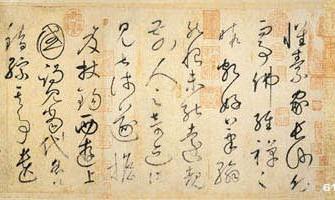 懷素家長沙幼而
事佛經禪之
暇頗好筆翰
然恨未能遠覩
前人之奇迹所
見甚淺遂擔
笈杖錫西遊上
國謁見當代名公
錯綜其事遺